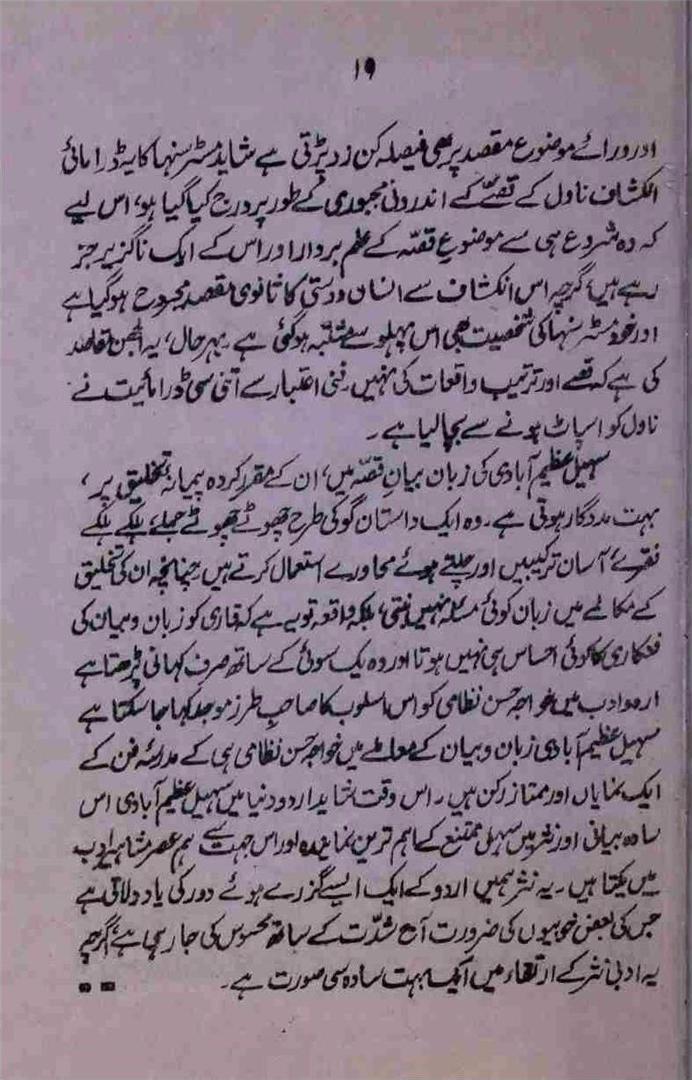 ۱۹
اور ورائے موضوع مقصد پر بھی فیصلہ کن زد پڑتی ہے شاید مسٹر سنہا کا یہ ڈرامائی
انکشاف ناول کے قصّے کے اندرونی مجبوری کے طور پر درج کیا گیا ہو، اس لیے
کہ وہ شروع ہی سے موضوعِ قصّہ کے علم بردار اور اس کے ایک ناگزیر جز
رہے ہیں، گرچہ اس انکشاف سے انسان دوستی کا ثانوی مقصد مجروح ہو گیا ہے
اور خود مسٹر سنہا کی شخصیت بھی اس پہلو سے مشتبہ ہو گئی ہے۔ بہر حال، یہ الجھن مقاصد
کی ہے کہ قصے اور ترتیب واقعات کی نہیں۔ فنی اعتبار سے اتنی سی ڈرامائیت نے
ناول کو اسپاٹ ہونے سے بچا لیا ہے۔
سہیل عظیم آبادی کی زبان بیانِ قصّہ میں، ان کے مقرر کردہ پیمانۂ تخلیق پر،
بہت مددگار ہوتی ہے۔ وہ ایک داستان گو کی طرح چھوٹے چھوٹے جملے، ہلکے ہلکے
فقرے، آسان ترکیبیں اور چلتے ہوئے محاورے استعمال کرتے ہیں۔ چنانچہ ان کی تخلیق
کے مکالمے میں زبان کوئی مسئلہ نہیں بنتی، بلکہ واقعہ تو یہ ہے کہ قاری کو زبان و بیان کی
فنکاری کا کوئی احساس ہی نہیں ہوتا اور وہ یک سوئی کے ساتھ صرف کہانی پڑھتا ہے
اردو ادب میں خواجہ حسن نظامی کو اس اسلوب کا صاحب طرز موجد کہا جا سکتا ہے
سہیل عظیم آبادی زبان و بیان کے معاملے میں خواجہ حسن نظامی ہی کے مدرسۂ فن کے
ایک نمایاں اور ممتاز رکن ہیں۔ اس وقت شاید اردو دنیا میں سہیل عظیم آبادی اس
سادہ بیانی اور نثر میں سہل ممتنع کے اہم ترین نمایندہ اور اس جہت سے ہم عصر مشاہیر ادب
میں یکتا ہیں۔ یہ نثر ہمیں اردو کے ایک ایسے گزرے ہوئے دور کی یاد دلاتی ہے
جس کی بعض خوبیوں کی ضرورت آج شدّت کے ساتھ محسوس کی جا رہی ہے، اگرچہ
یہ ادبی نثر کے ارتقاء میں ایک بہت سادہ سی صورت ہے۔